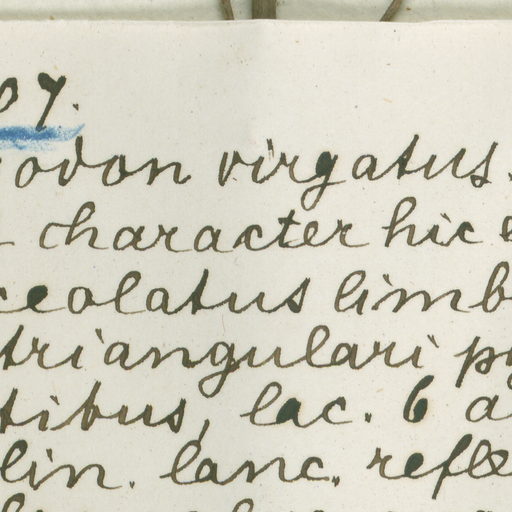 07.
odon virgatus.
character hic e
ceolatus limb
triangulari py
tibus, lac. 6 a
lin. lanc. refle